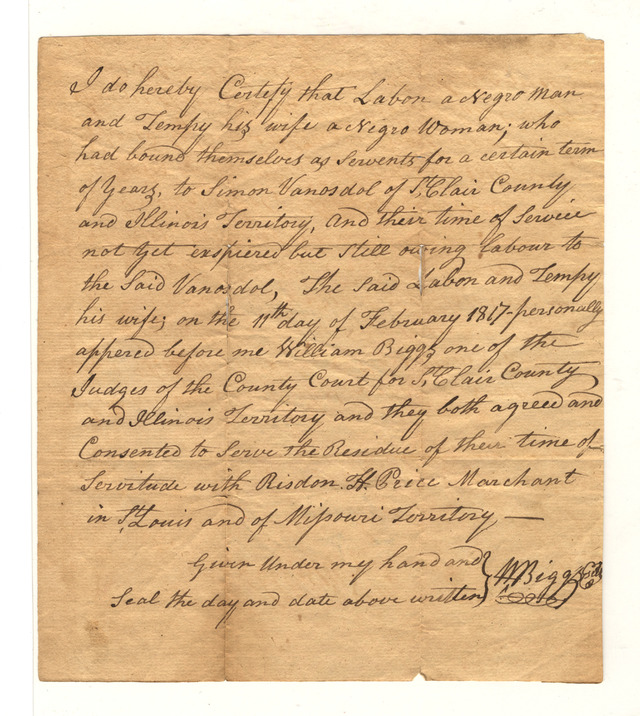 I do hereby Certify that Labon a Negro Man
and Tempy his wife a Negro Woman; who
had bound themselves as Servents for a certain term
of Years, to Simon Vanosdol of St. Clair County
and Illinois Territory, and their time of Service
not yet exspiered but still owing labour to
the Said Vanosdol, The Said Labon and Tempy
his wife; on the 11th day of February 1817 - personally
appered before me William Biggs one of the
Judges of the County Court for St. Clair County
and Illinois Territory and they both agreed and
Consented to Serve the Residue of their time of
Servitude with Risdon H. Price Marchant
in St. Louis and of Missouri Territory —
Given Under my hand and
Seal the day and date above written
Wm Biggs